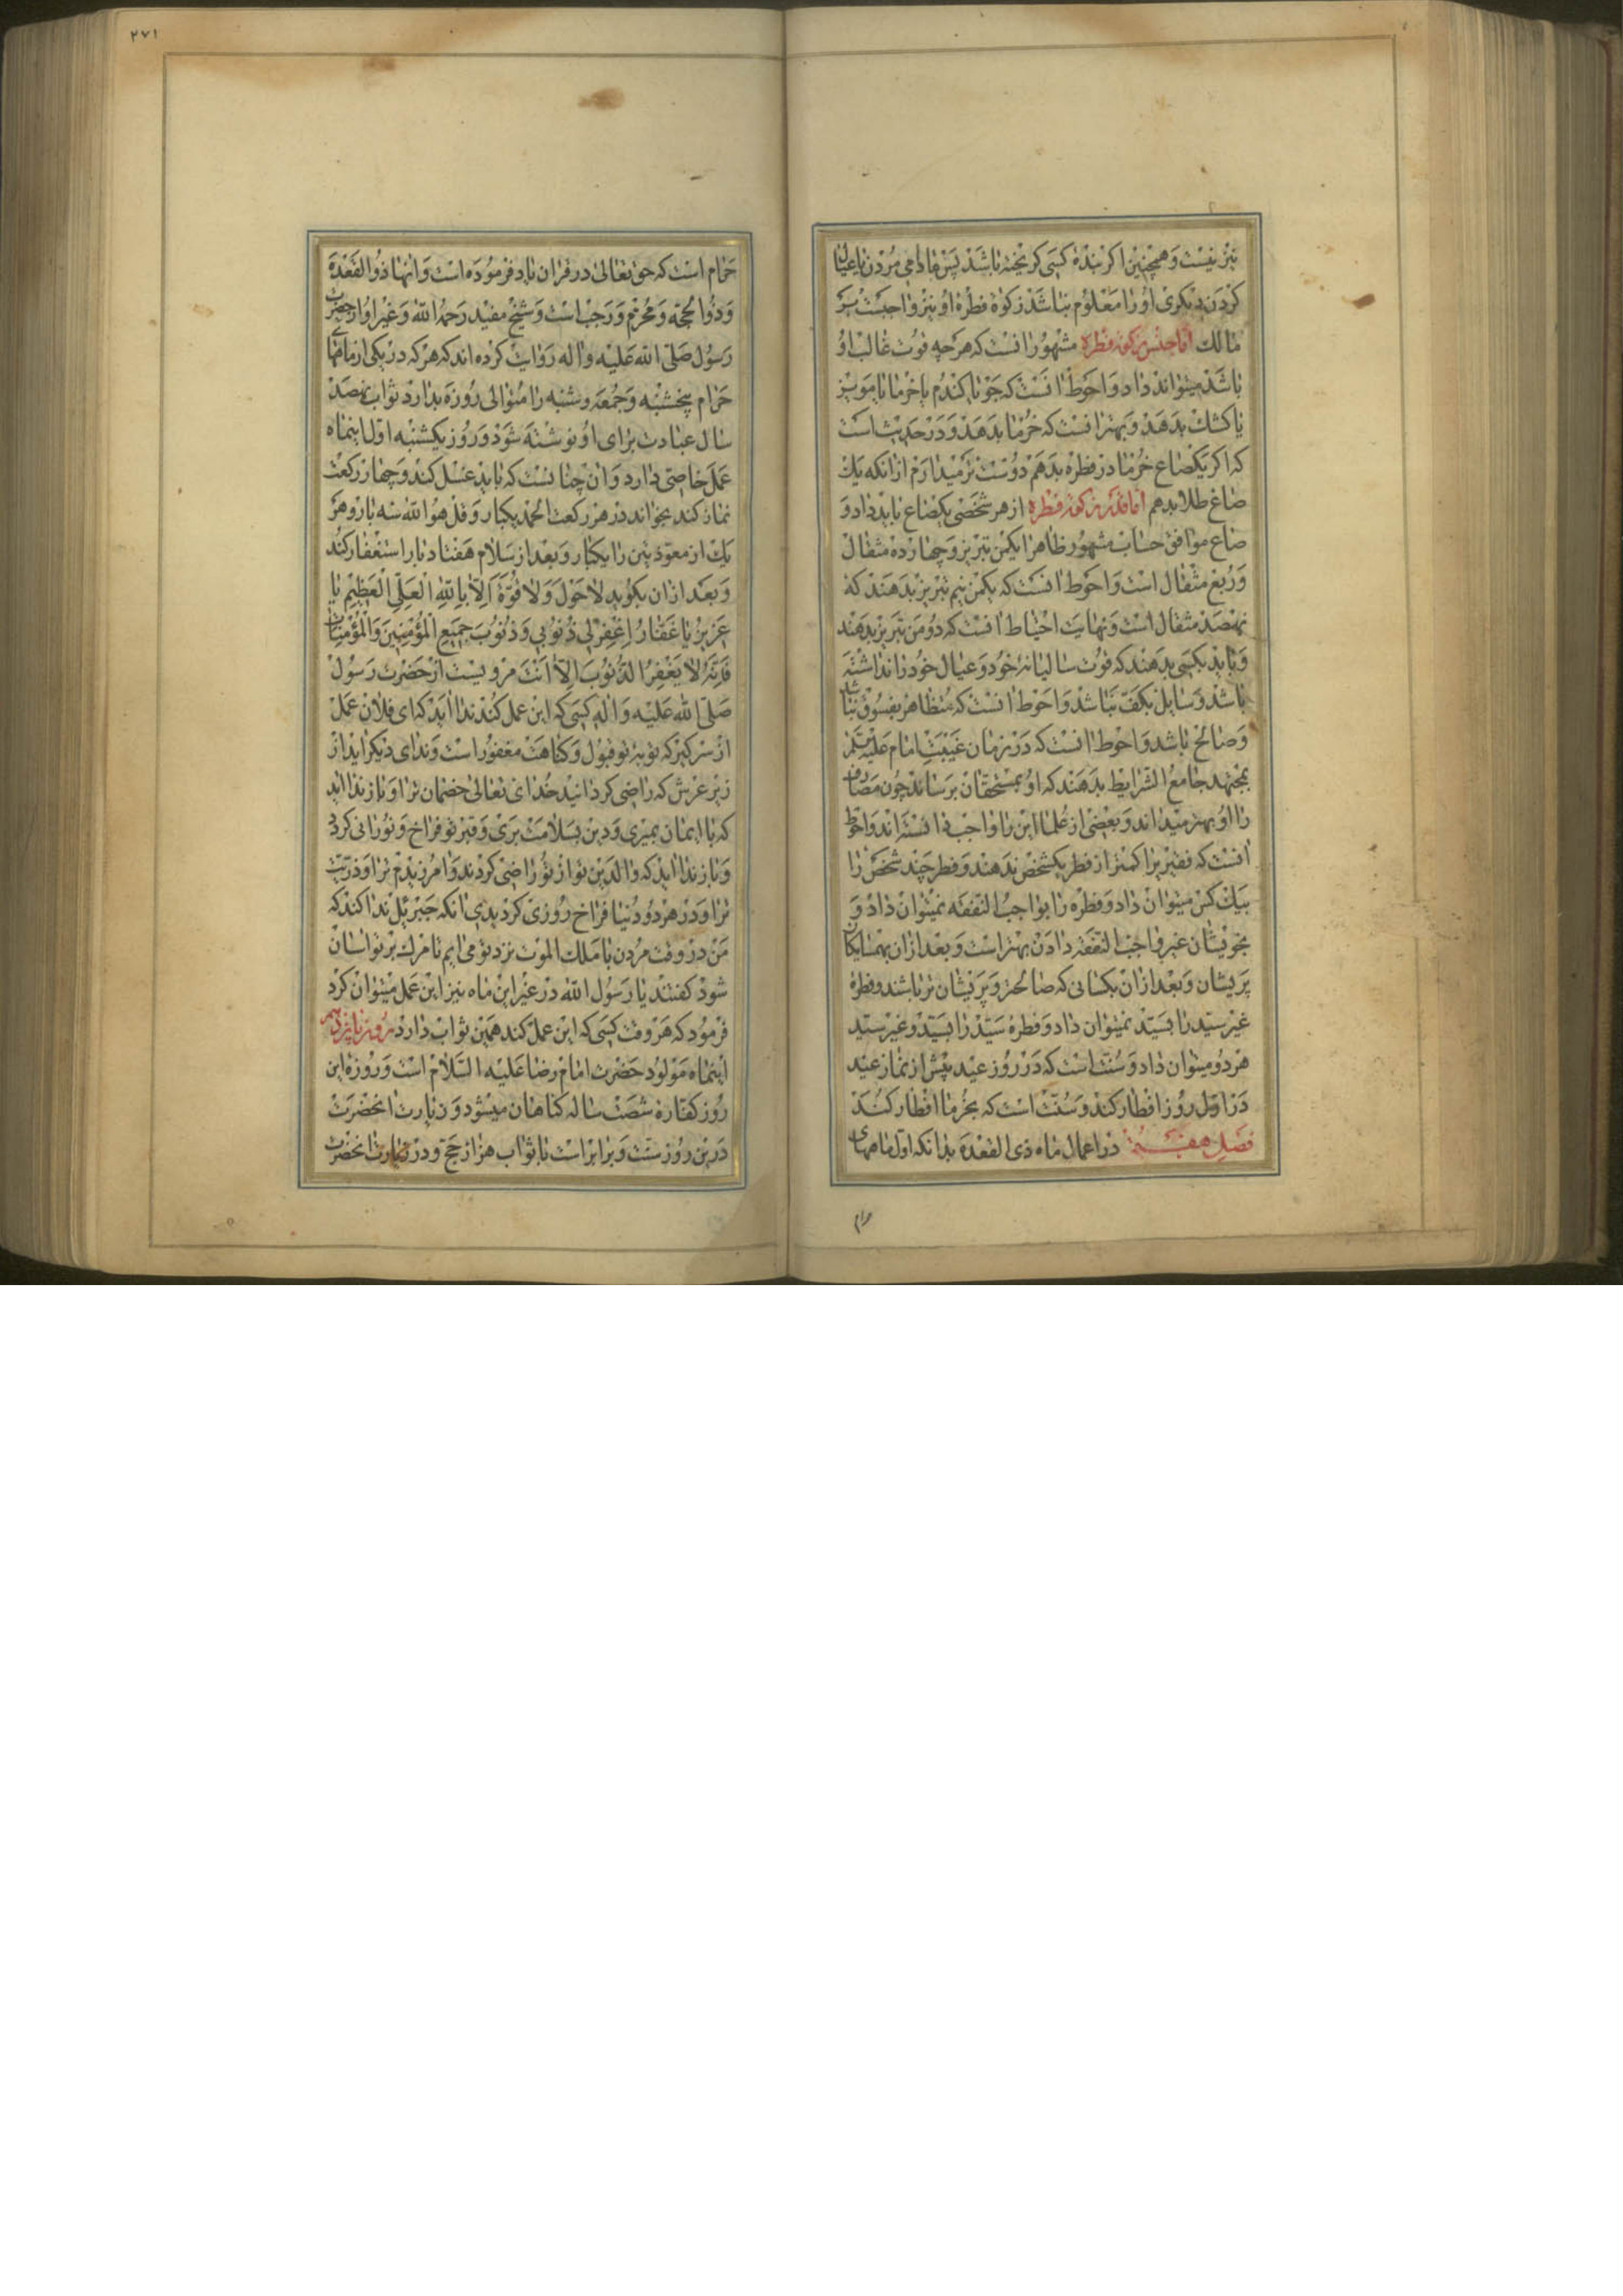 نیز نیست و همچنین اکر بندهٔ کسی کریخته باشد پس مادامی مردن یا عیال
کردن دیکری او را معلوم نباشد زکوة فطرهٔ او نیز واجبست بر
مالک اما جنس زکوة فطره مشهور انست که هر چه قوت غالب او
باشد میتواند داد و احوط انست که جو یا کندم یا خرما یا مویز
یا کشک بدهد و بهتر انست که خرما بدهد و در حدیث است
که اکر یکصاع خرما در فطره بدهم دوست تر میدارم از انکه یک
صاع طلا بدهم اما قدر زکوة فطره از هر شخصی یکصاع باید داد و
صاع موافق حساب مشهور ظاهرا یکمن تبریز و چهارده مثقال
و ربع مثقال است و احوط انست که یکمن نیم تبریز بدهند که
نهصد مثقال است و نهایت احتیاط انست که دو من تبریز بدهند
و باید بکسی بدهند که قوت سالیانهٔ خود و عیال خود را نداشته
باشد و سایل بکف نباشد و احوط انست که متظاهر بفسوق نباشد
و صالح باشد و احوط انست که در زمان غیبت امام علیه السلم
بمجتهد جامع الشرایط بدهند که او بمستحقان برساند چون مصارف
را او بهتر میداند و بعضی از علما این را واجب دانسته‌اند و احوط
انست که فقیر برا کمتر از فطر یکشخص ندهند و فطر چند شخص را
بیک کس میتوان داد و فطره را بواجب النفقه نمیتوان داد و
بخویشان غیر واجب النفقه دادن بهتر است و بعد از ان بهمسایکان
پریشان و بعد از ان بکسانی که صالحتر و پریشان تر باشند و فطرهٔ
غیر سید را بسید نمیتوان داد و فطرهٔ سید را بسید و غیر سید
هر دو میتوان داد و سنت است که در روز عید پیش از نماز عید
در اول روز افطار کند و سنت است که بخرما افطار کنند
فصل هفتم در اعمال ماه ذی القعده بدانکه اول ماههای
حرام
٢٧١
حرام است که حق تعالی در قران یاد فرموده است و انها ذو القعده
و ذو الحجه و محرم و رجب است و شیخ مفید رحمه الله و غیر او از حضرت
رسول صلی الله علیه و اله روایت کرده اند که هر که در یکی از ماههای
حرام پنجشنبه و جمعه و شنبه را متوالی روزه بدارد ثواب نهصد
سال عبادت برای او نوشته شود و روز یکشنبه اول اینماه
عمل خاصی دارد و ان چنانست که باید غسل کند و چهار رکعت
نماز کند بخواند در هر رکعت الحمد یکبار و قل هو الله سه بار و هر
یک از معوذتین را یکبار و بعد از سلام هفتاد بار استغفار کند
و بعد از ان بکوید لا حول و لا قوة الا بالله العلی العظیم یا
عزیز یا غفار اغفر لی ذنوبی و ذنوب جمیع المؤمنین و المؤمنات
فانه لا یغفر الذنوب الا انت مرویست از حضرت رسول
صلی الله علیه و اله کسی که این عمل کند ندا اید که ای فلان عمل
از سر کیر که توبهٔ تو قبول و کناهت مغفور است و ندای دیکر اید از
زیر عرش که راضی کردانید خدای تعالی خصمان ترا و باز ندا اید
که با ایمان بمیری و دین بسلامت بری و قبر تو فراخ و نورانی کردد
و باز ندا اید که والدین تو از تو راضی کردند و امرزیدم ترا و ذریت
ترا و در هر دو دنیا فراخ روزی کردیدی انکه جبرئیل ندا کند که
من در وقت مردن با ملک الموت نزد تو می ایم تا مرک بر تو اسان
شود کفتند یا رسول الله در غیر این ماه نیز این عمل میتوان کرد
فرمود که هر وقت کسی که این عمل کند همین ثواب دارد روز یازدهم
اینماه مولود حضرت امام رضا علیه السلام است و روزه این
روز کفارهٔ شصت ساله کناهان میشود و زیارت انحضرت
درین روز سنت و برابر است با ثواب هزار حج و در زیارت انحضرت